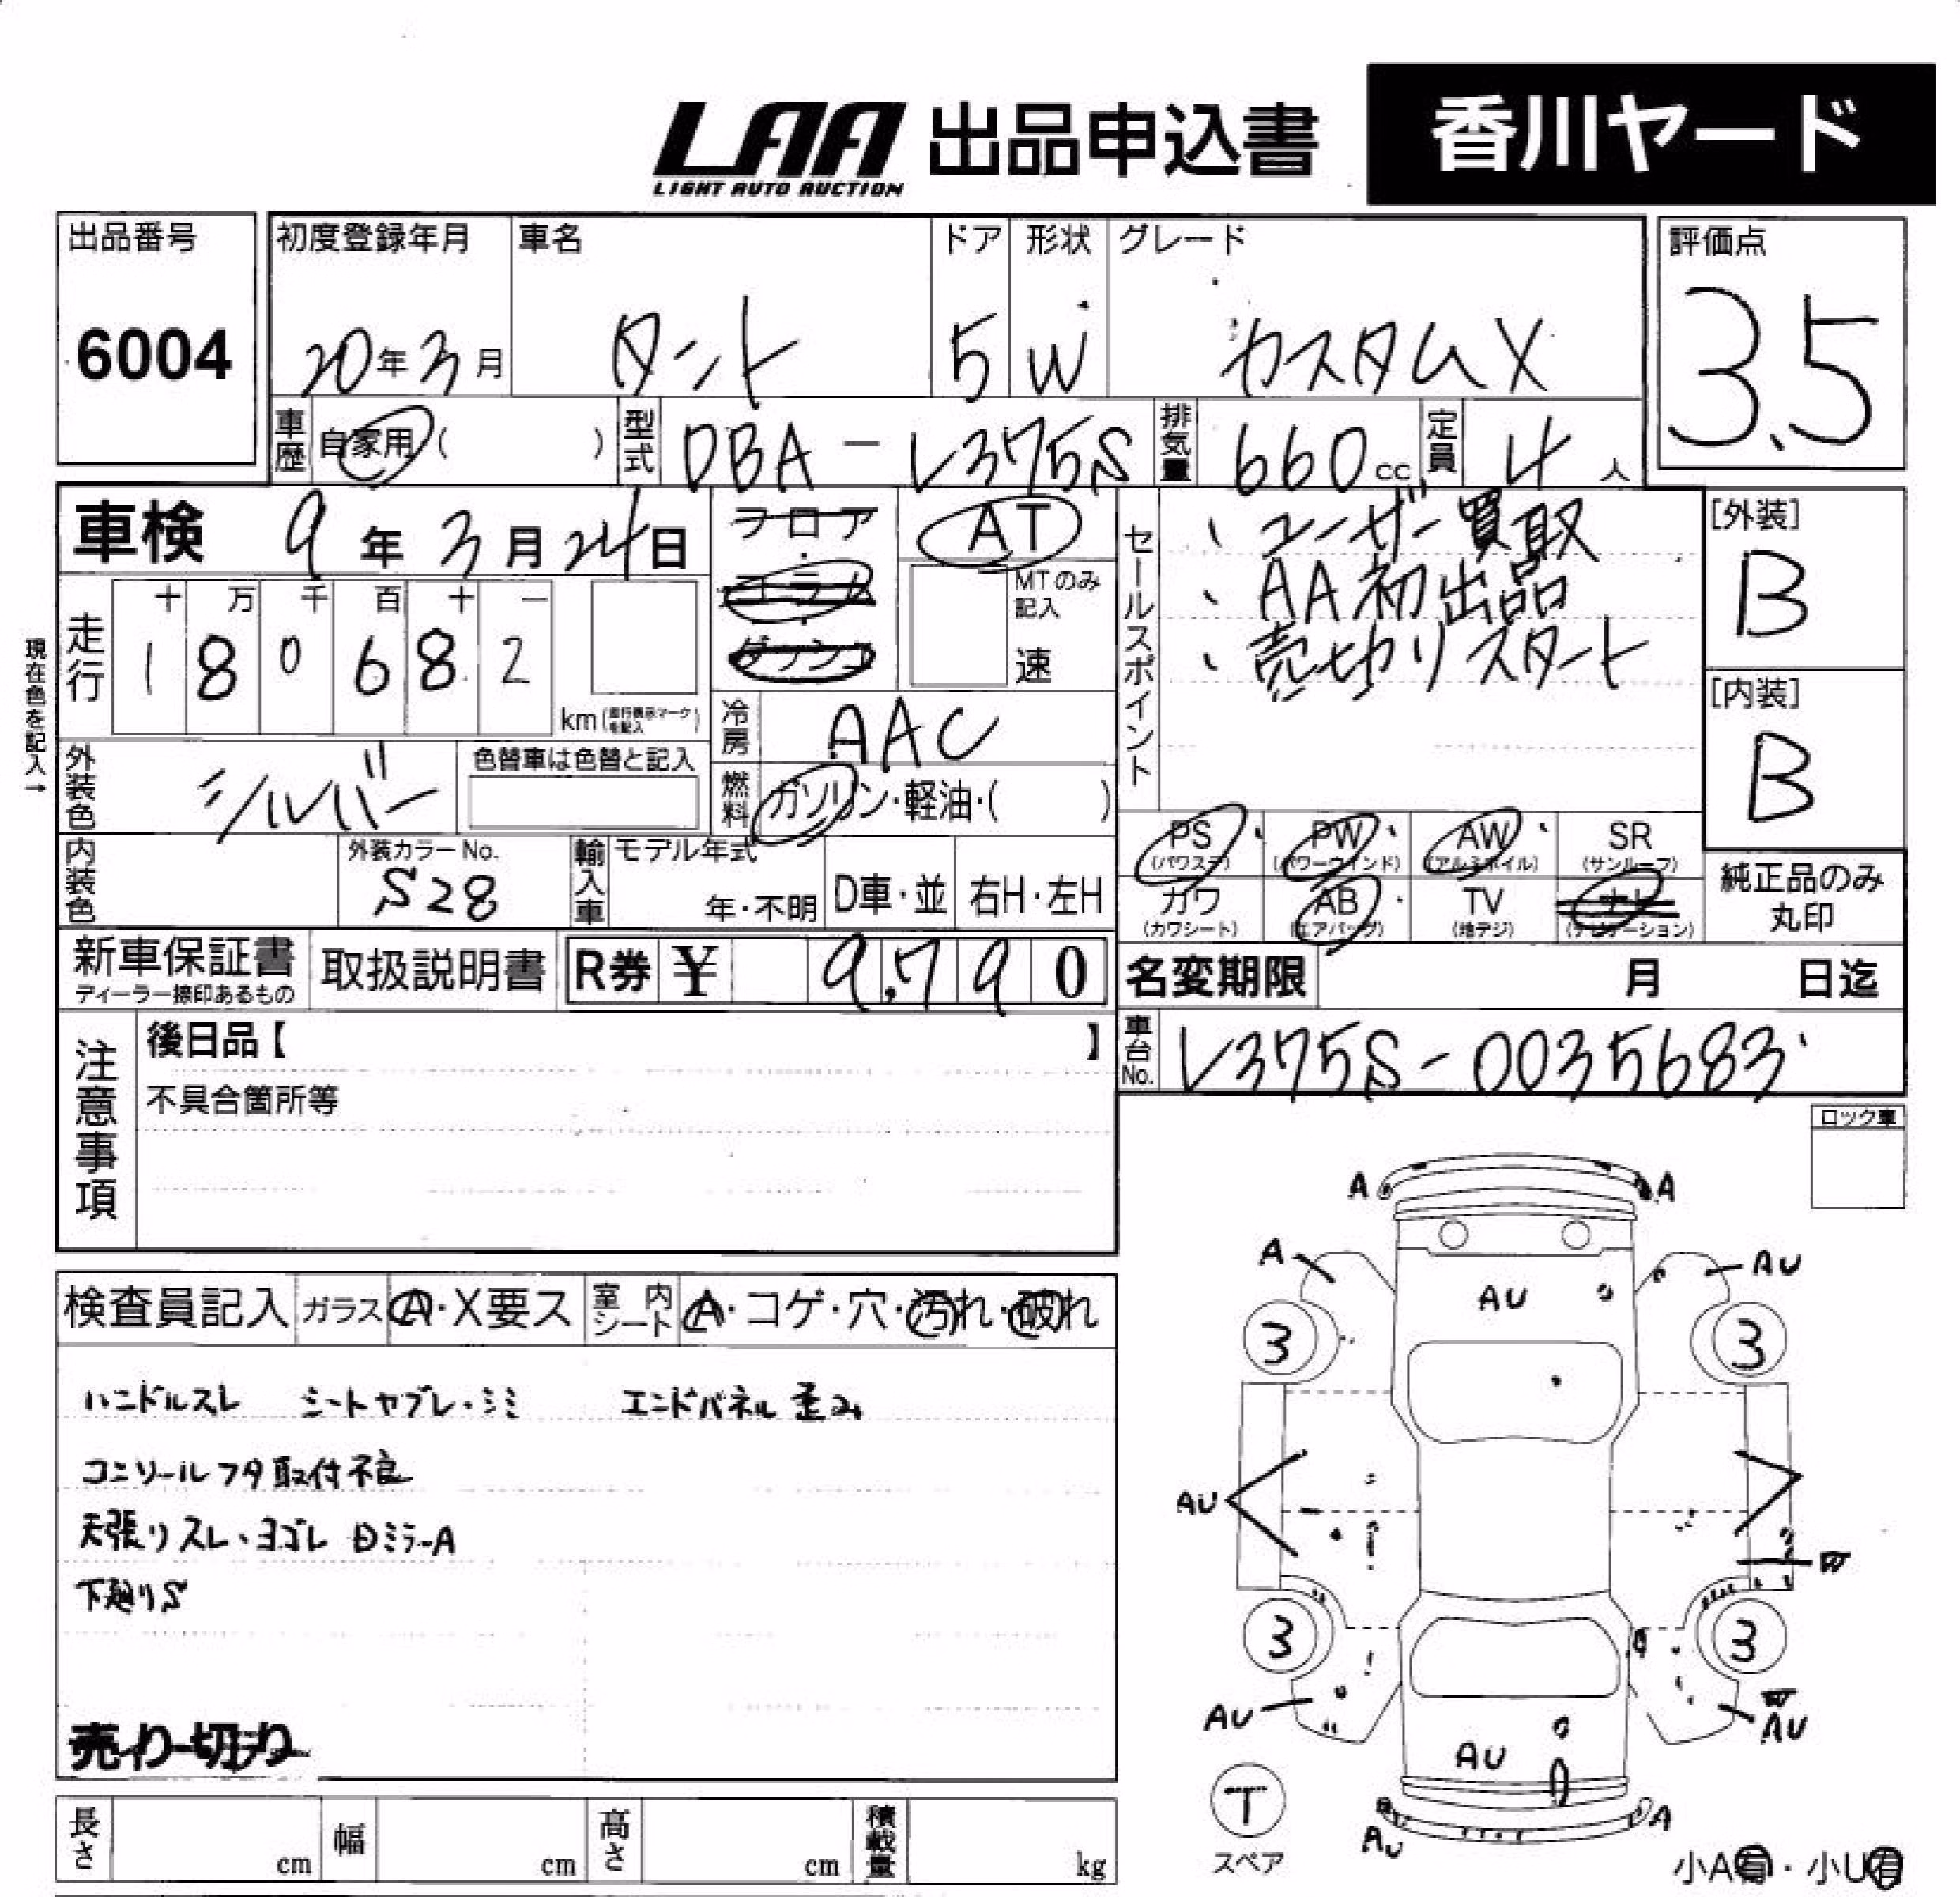 LAA 出品申込書 香川ヤード
LIGHT AUTO AUCTION
出品番号 初度登録年月 車名 ドア 形状 グレード 評価点
6004 20年3月 タント 5 W カスタムX 3.5
車歴 自家用( ) 型式 DBA-L375S 排気量 660cc 定員 4人
車検 9年3月24日 フロア AT セールスポイント 、ユーザー買取 [外装]
コラム MTのみ記入 、AA初出品 B
十 万 千 百 十 一
走行 1 8 0 6 8 2 km(走行表示マークを記入) 速 、売切りスタート [内装]
現在色を記入→
冷房 AAC B
外装色 シルバー 色替車は色替と記入 燃料 ガソリン・軽油・( )
PS PW AW SR
(パワステ) (パワーウインド) (アルミホイル) (サンルーフ)
内装色 外装カラーNo. S28 輸入車 モデル年式 年・不明 D車・並 右H・左H
カワ AB TV ナビ 純正品のみ
(カワシート) (エアバッグ) (地デジ) (ナビゲーション) 丸印
新車保証書 取扱説明書 R券 ¥ 9,790 名変期限 月 日迄
ディーラー捺印あるもの
注意事項 後日品【 】 車台No. L375S-0035683
不具合箇所等
ロック車
検査員記入 ガラス A・X要ス 室内シート A・コゲ・穴・汚れ・破れ
ハンドルスレ シートヤブレ・シミ エンドパネル歪み
コンソールフタ取付不良
天張りスレ・ヨゴレ 日ミラーA
下廻りS
売り切り
A A
A AU
AU
3 3
AU
3 3
AU AU
AU
T A
スペア AU
小A有・小U有
長さ cm 幅 cm 高さ cm 積載量 kg